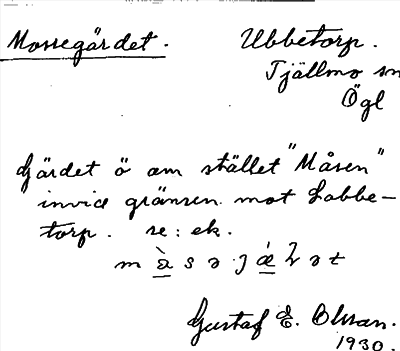 Mossegärdet.
Ubbetorp.
Tjällmo sn
Ögl
Gärdet ö om stället "Måsen"
invid gränsen mot Labbe-
torp. se: ek.
Gustaf E. Olsson.
1930.